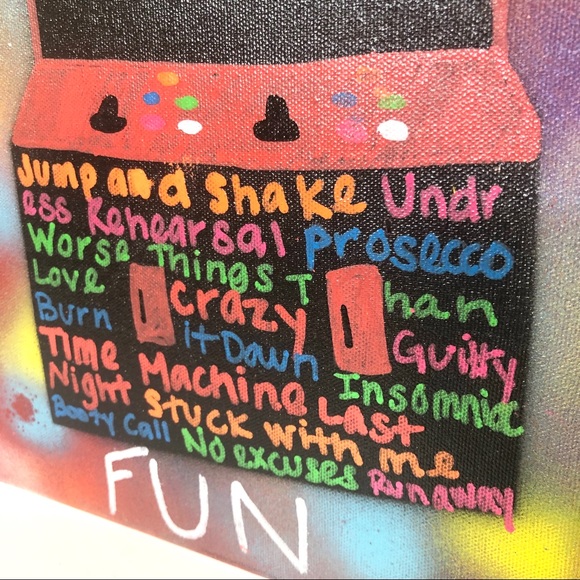 Jump and Shake Undr
ess Rehearsal Prosecco
Worse Things Than
Love Crazy Guilty
Burn it Down Insomniac
Time Machine Last
Night Stuck with me
Booty Call No excuses Runaway
FUN